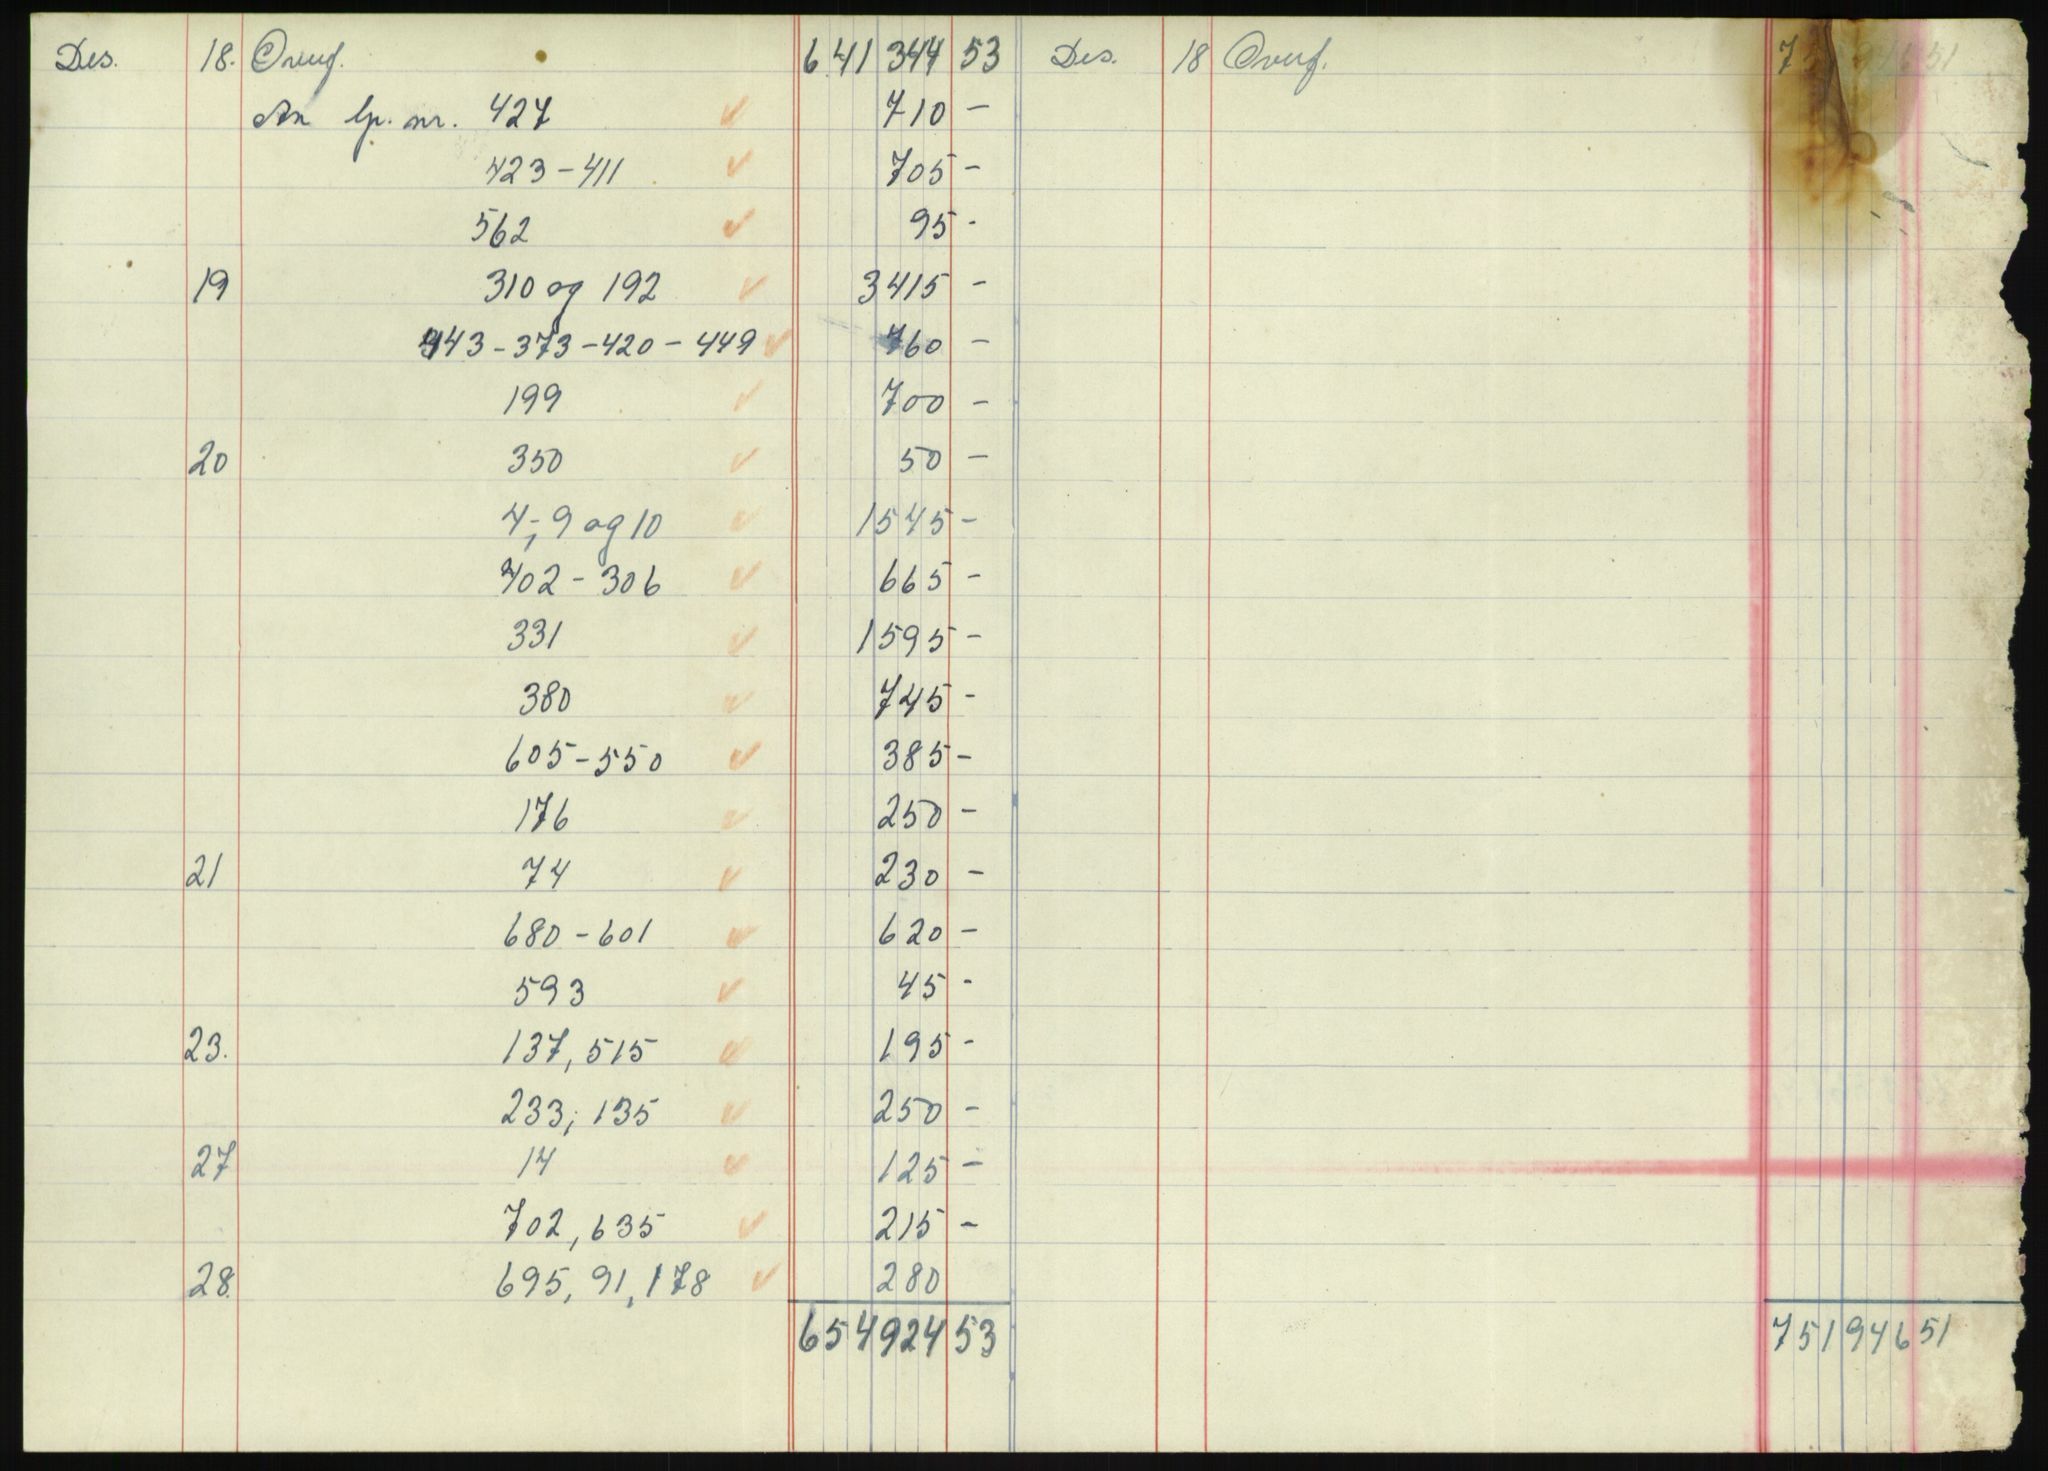 Des. 18. Overf. 641 344 53
An lp. nr. 427 ✓ 710 -
423-411 ✓ 705 -
562 ✓ 95 -
19 310 og 192 ✓ 3415 -
443-373-420-449 ✓ 760 -
199 ✓ 700 -
20 350 ✓ 50 -
4,- 9 og 10 ✓ 1545 -
402-306 ✓ 665 -
331 ✓ 1595 -
380 ✓ 745 -
605-550 ✓ 385 -
176 ✓ 250 -
21 74 ✓ 230 -
680-601 ✓ 620 -
593 ✓ 45 -
23. 137, 515 ✓ 195 -
233; 135 ✓ 250 -
27 14 ✓ 125 -
702, 635 ✓ 215 -
28. 695, 91, 178 ✓ 280
654 924 53
Des. 18 Overf. 751 946 51
751 946 51